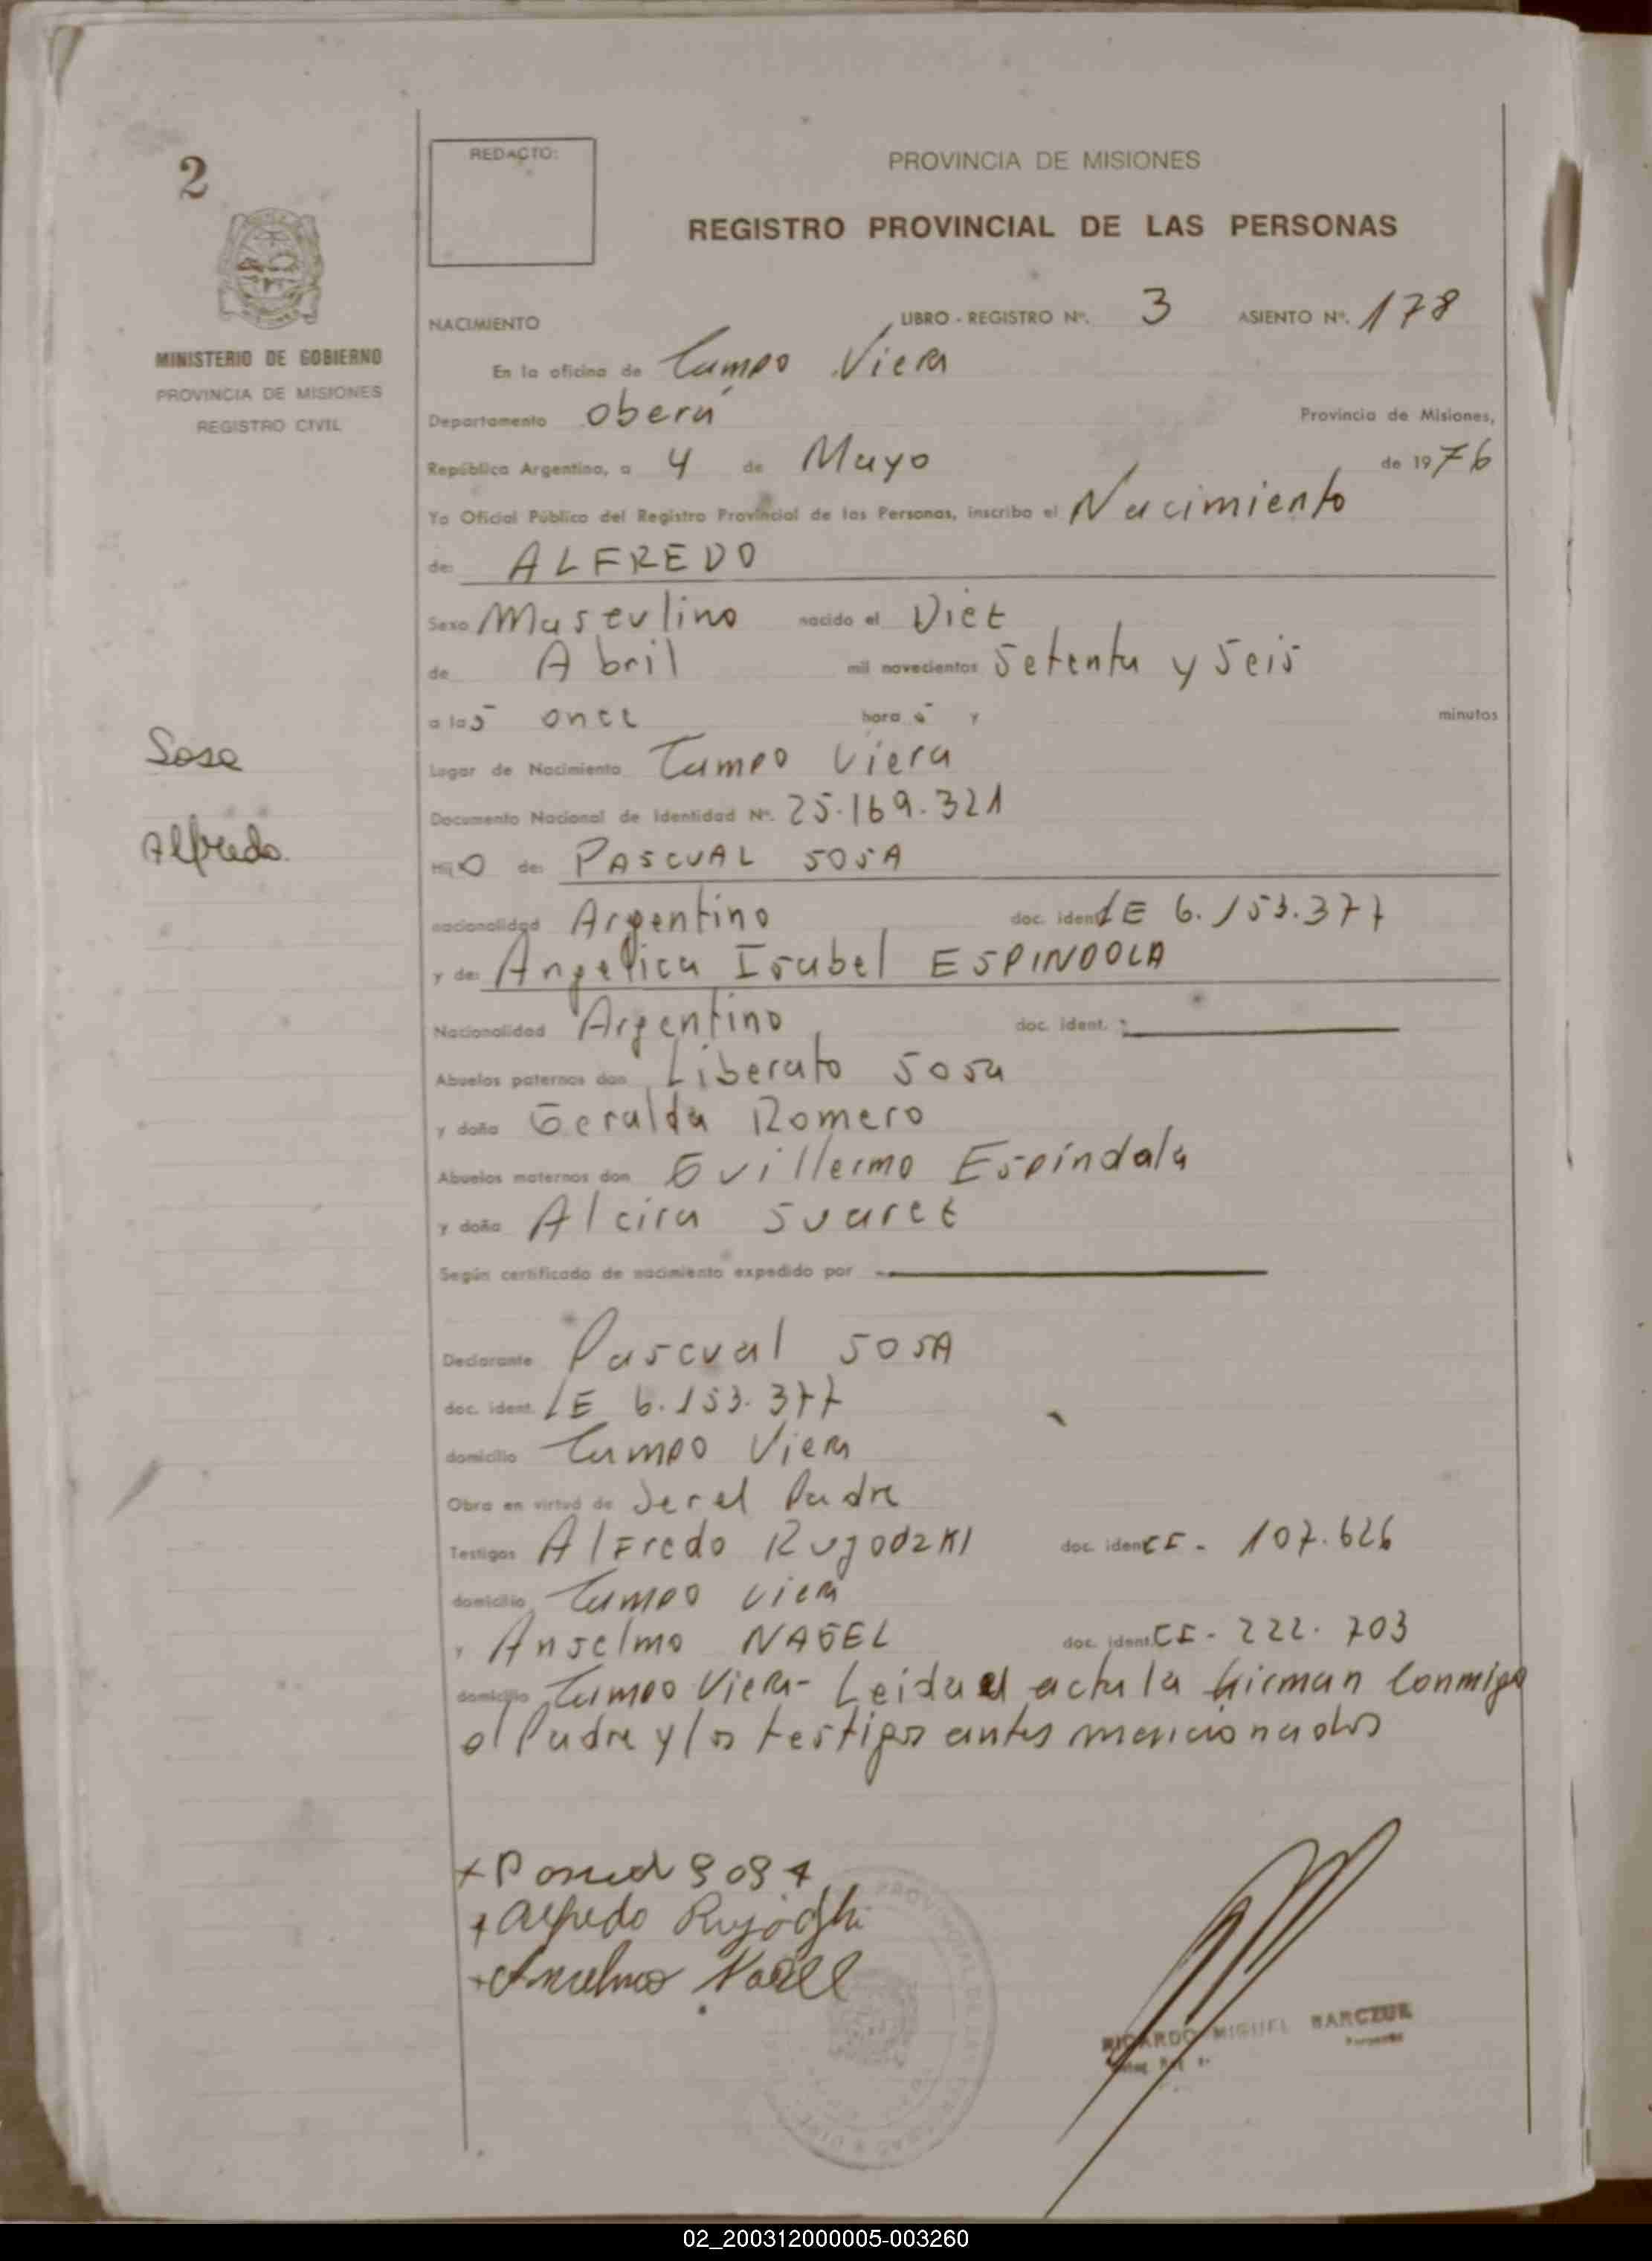 2
REDACTO:
PROVINCIA DE MISIONES
REGISTRO PROVINCIAL DE LAS PERSONAS
MINISTERIO DE GOBIERNO
PROVINCIA DE MISIONES
REGISTRO CIVIL
NACIMIENTO LIBRO - REGISTRO Nº. 3 ASIENTO Nº. 178
En la oficina de Campo Viera
Departamento Oberá Provincia de Misiones,
República Argentina, a 4 de Mayo de 1976
Yo Oficial Público del Registro Provincial de las Personas, inscribo el Nacimiento
de: ALFREDO
Sexo Masculino nacido el Diez
de Abril mil novecientos Setenta y Seis
a las once horas y minutos
Lugar de Nacimiento Campo Viera
Documento Nacional de Identidad Nº. 25.169.321
Hijo de: PASCUAL SOSA
nacionalidad Argentino doc. ident. LE 6.153.377
y de: Angelica Isabel ESPINDOLA
Nacionalidad Argentino doc. ident.
Abuelos paternos don Liberato Sosa
y doña Geralda Romero
Abuelos maternos don Guillermo Espíndala
y doña Alcira Suarez
Según certificado de nacimiento expedido por
Declarante Pascual SOSA
doc. ident. LE 6.153.377
domicilio Campo Viera
Obra en virtud de Ser el Padre
Testigos Alfredo Rujodzki doc. ident. CI - 107.626
domicilio Campo Viera
y Anselmo NAGEL doc. ident. CI - 222.703
domicilio Campo Viera - Leida el acta la firman Conmigo
el Padre y los testigos antes mencionados
Sosa
Alfredo
+ Pascual Sosa
+ Alfredo Rujodzki
+ Anselmo Nagel
RICARDO MIGUEL BARCZUK
02_200312000005-003260